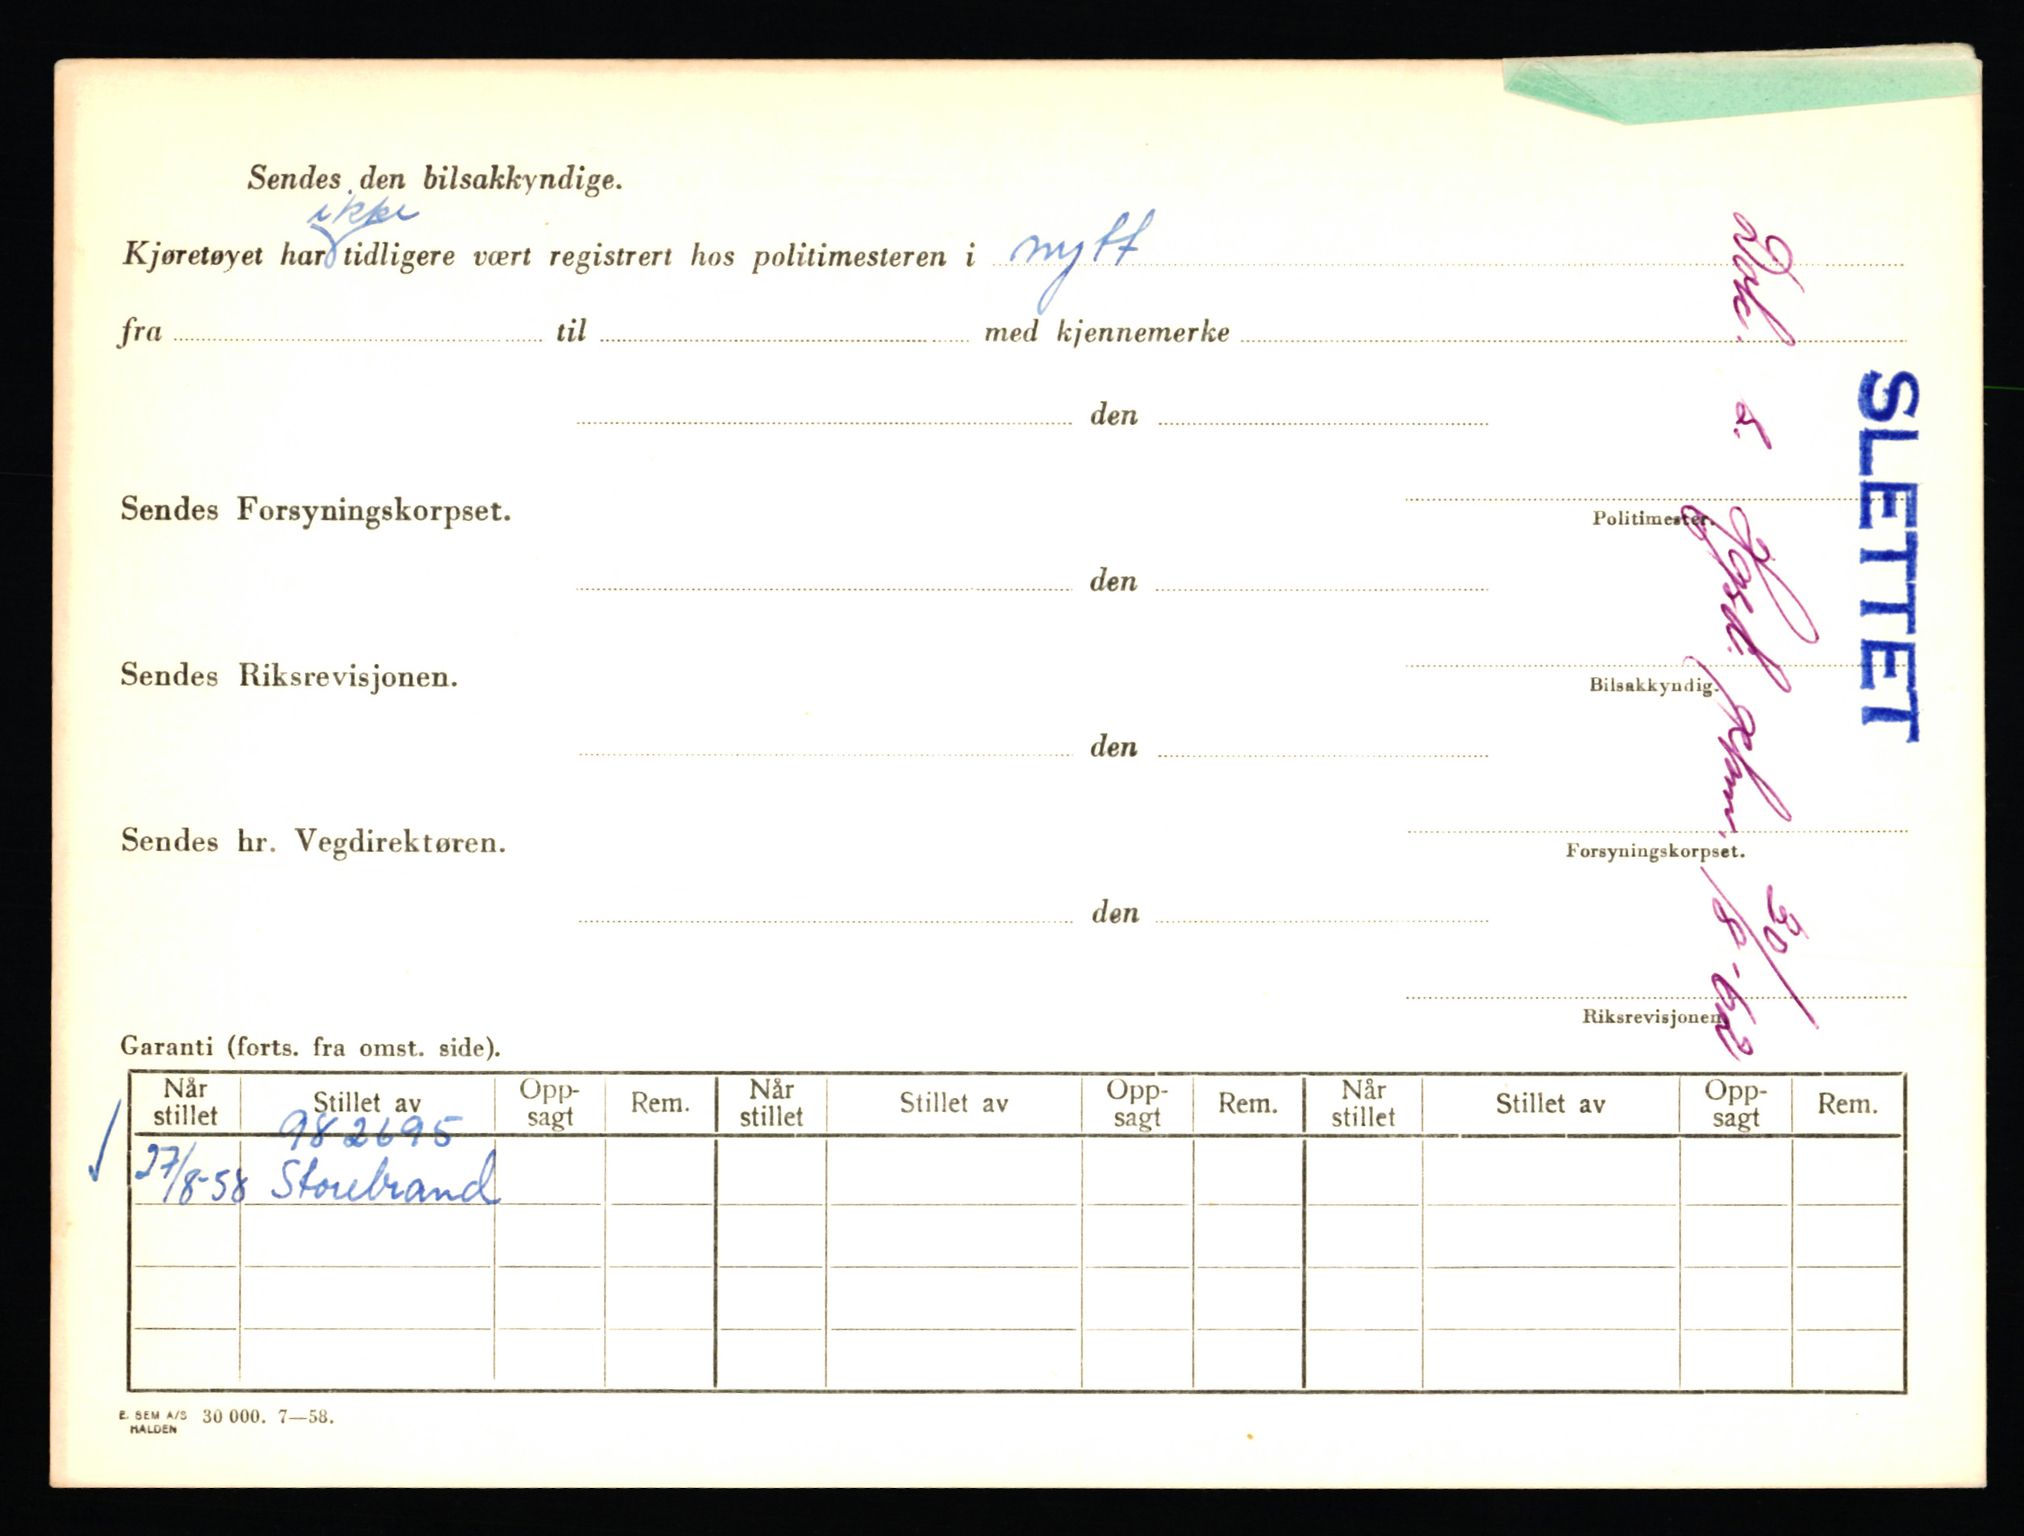 Sendes den bilsakkyndige.
ikke
Kjøretøyet har tidligere vært registrert hos politimesteren i nytt
fra til med kjennemerke
den
Sendes Forsyningskorpset.
Politimester.
den
Sendes Riksrevisjonen.
Bilsakkyndig.
den
Sendes hr. Vegdirektøren.
Forsyningskorpset.
den
Riksrevisjonen.
SLETTET
30/8-62
Garanti (forts. fra omst. side).
Når stillet Stillet av Opp-sagt Rem. Når stillet Stillet av Opp-sagt Rem. Når stillet Stillet av Opp-sagt Rem.
982695
27/8-58 Storebrand
E. SEM A/S HALDEN 30 000. 7—58.